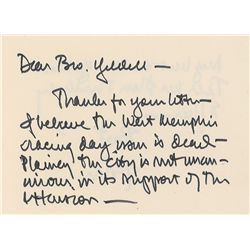 Dear Bro. Yeldell —
Thanks for your letter –
I believe the West Memphis
racing day issue is dead –
Plainly the City is not unan-
imous in its support of the